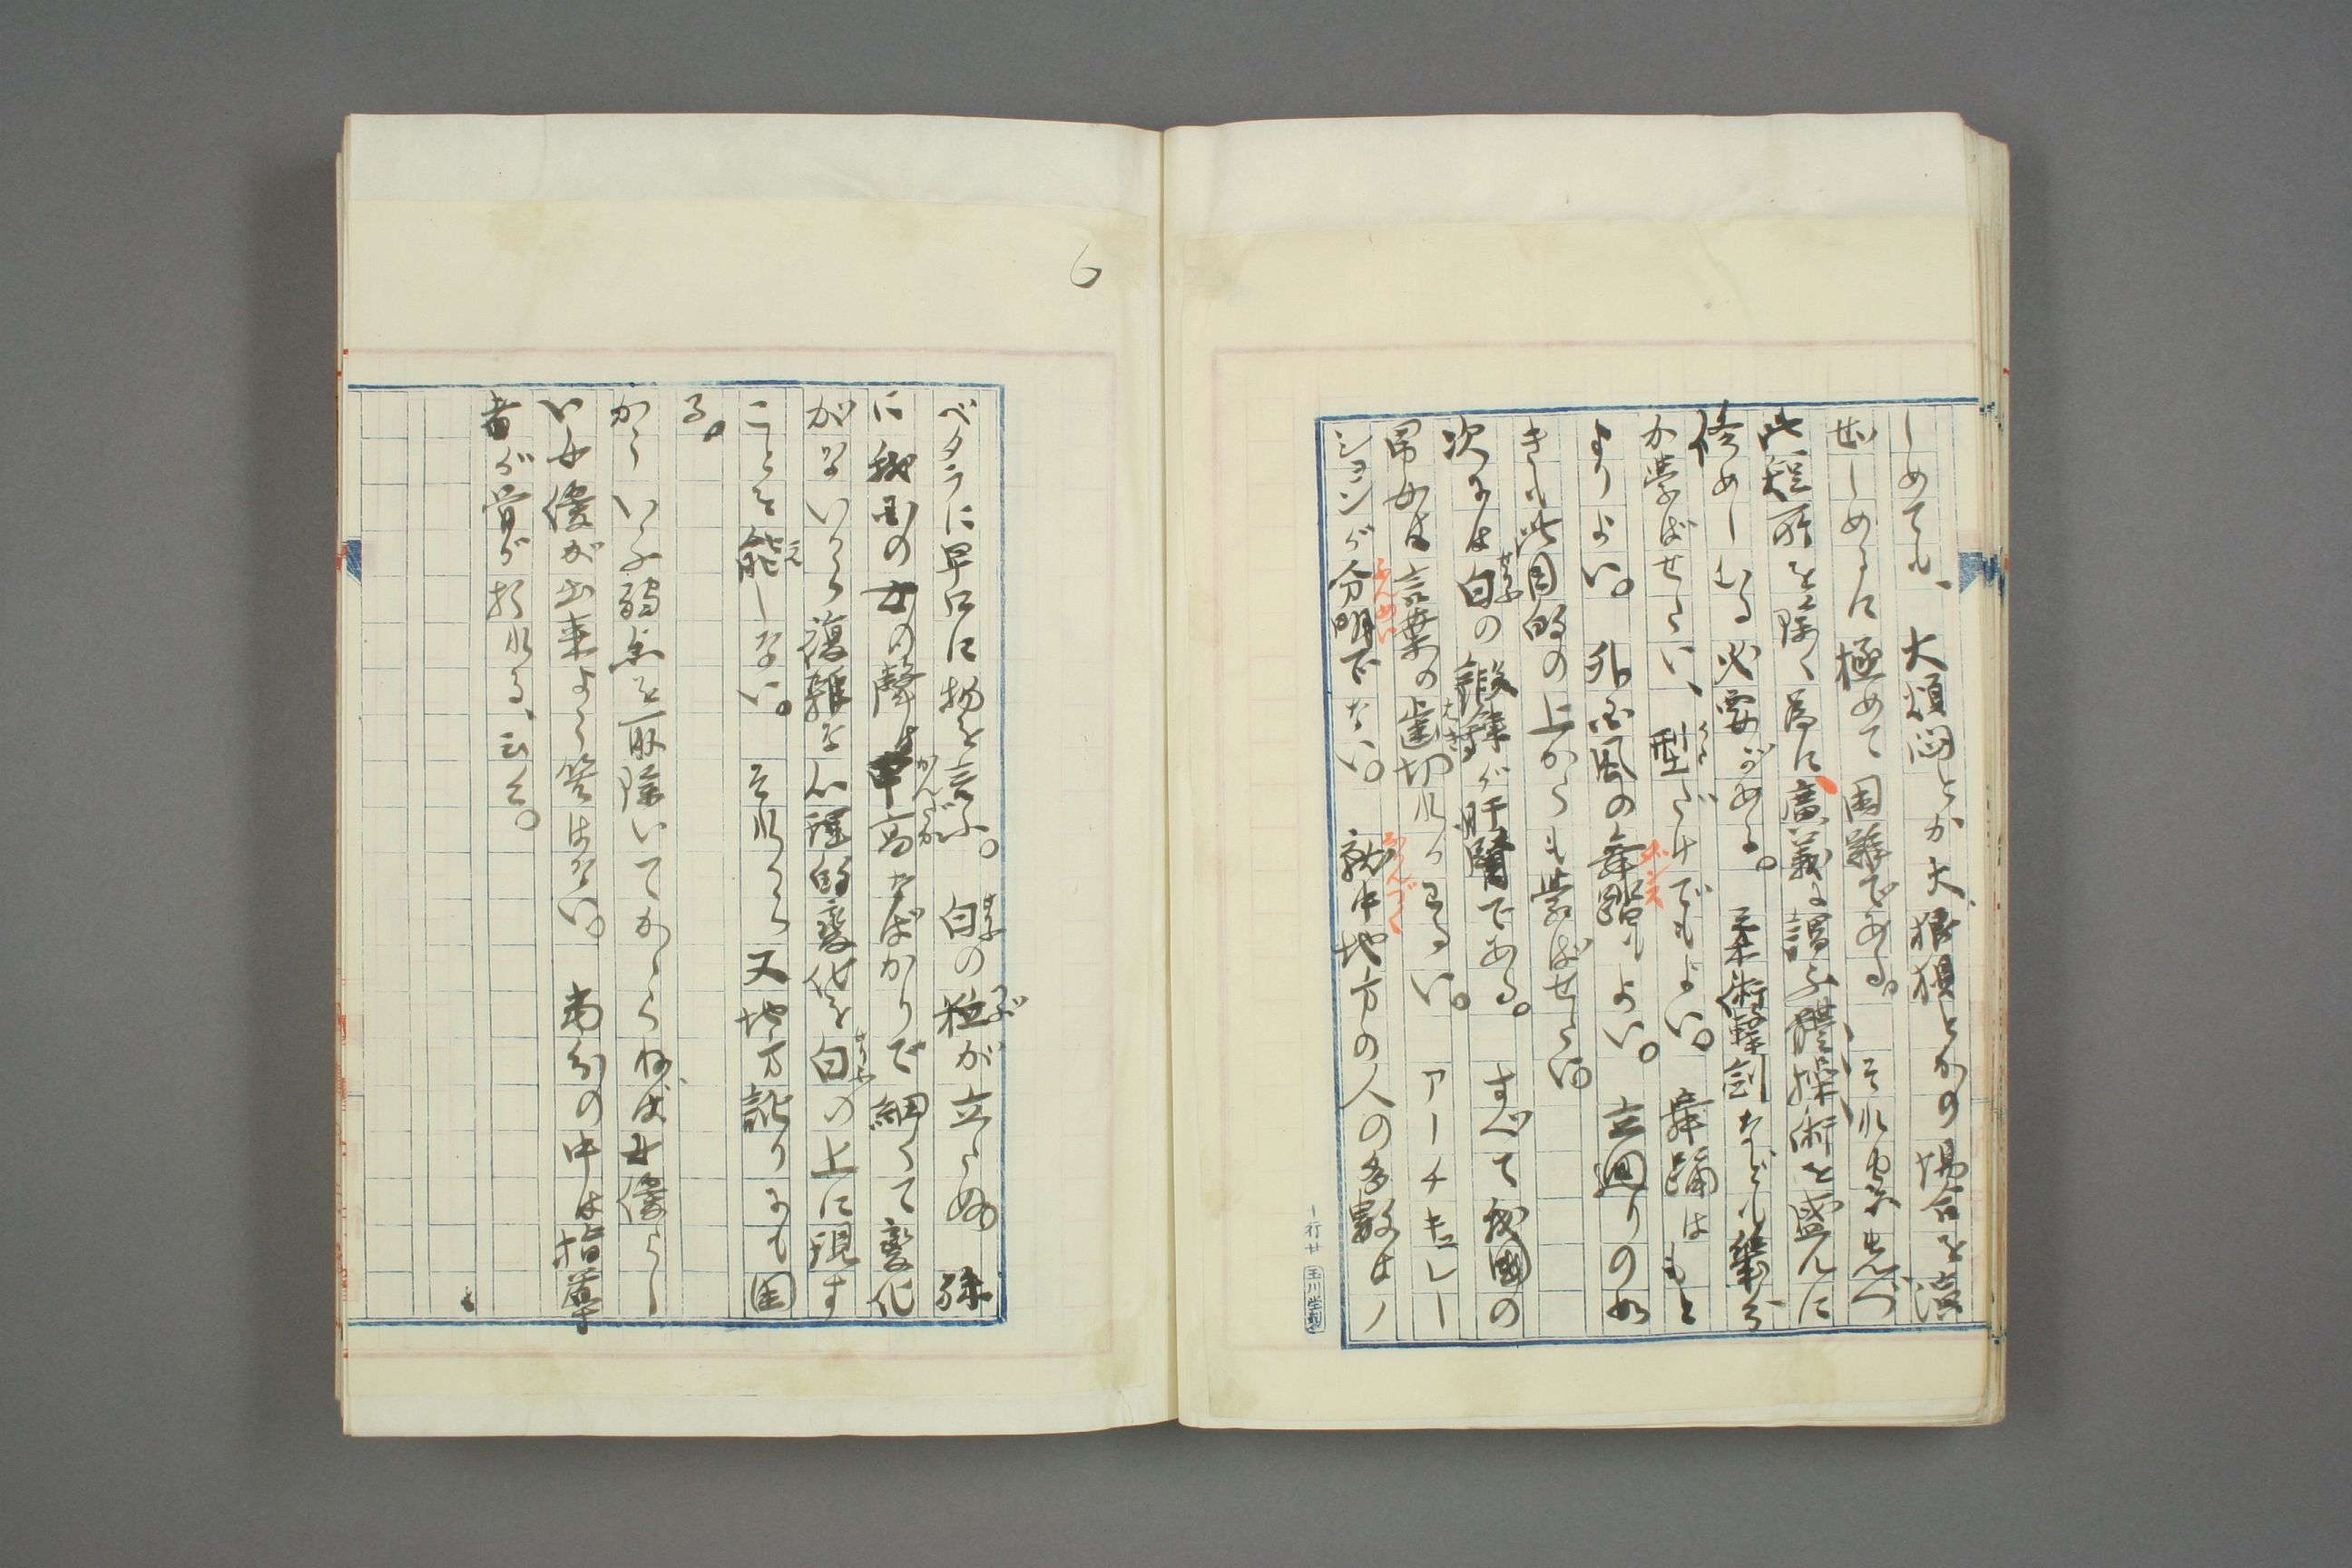 しめても、大煩悶とか大狼狽とかの場合を演
ぜしめるに極めて困難である。それ故先づ
此短所を除く為に廣義に謂ふ體操術を盛んに
修めしむる必要がある。柔術撃劍なども幾分
か學ばせたい、型だけでもよい。舞踊はもと
かた
よりよい。外国風の舞踏もよい。立廻りの如
ダンス
きも此目的の上からも學ばせたい。
次には白の鍛錬が肝腎である。すべて我國の
せりふ
男女は言葉の歯切れがわるい。アーチキュレー
はぎ
ションが分明でない。就中地方の人の多數はノ
ふんめい
なかんづく
一行廿
玉川堂製
6
ベタラに早口に物を言ふ。白の粒が立たぬ。殊
せりふ
つぶ
に我国の女の聲は甲高なばかりで細くて變化
かんだか
がないから複雜な心理的變化を白の上に現す
せりふ
ことを能しない。それから又地方訛りにも困
え
る。
かういふ弱点を取除いてかゝらねば女優らし
い女優が出来よう筈はない。当分の中は指導
者が骨が折れる、云々。